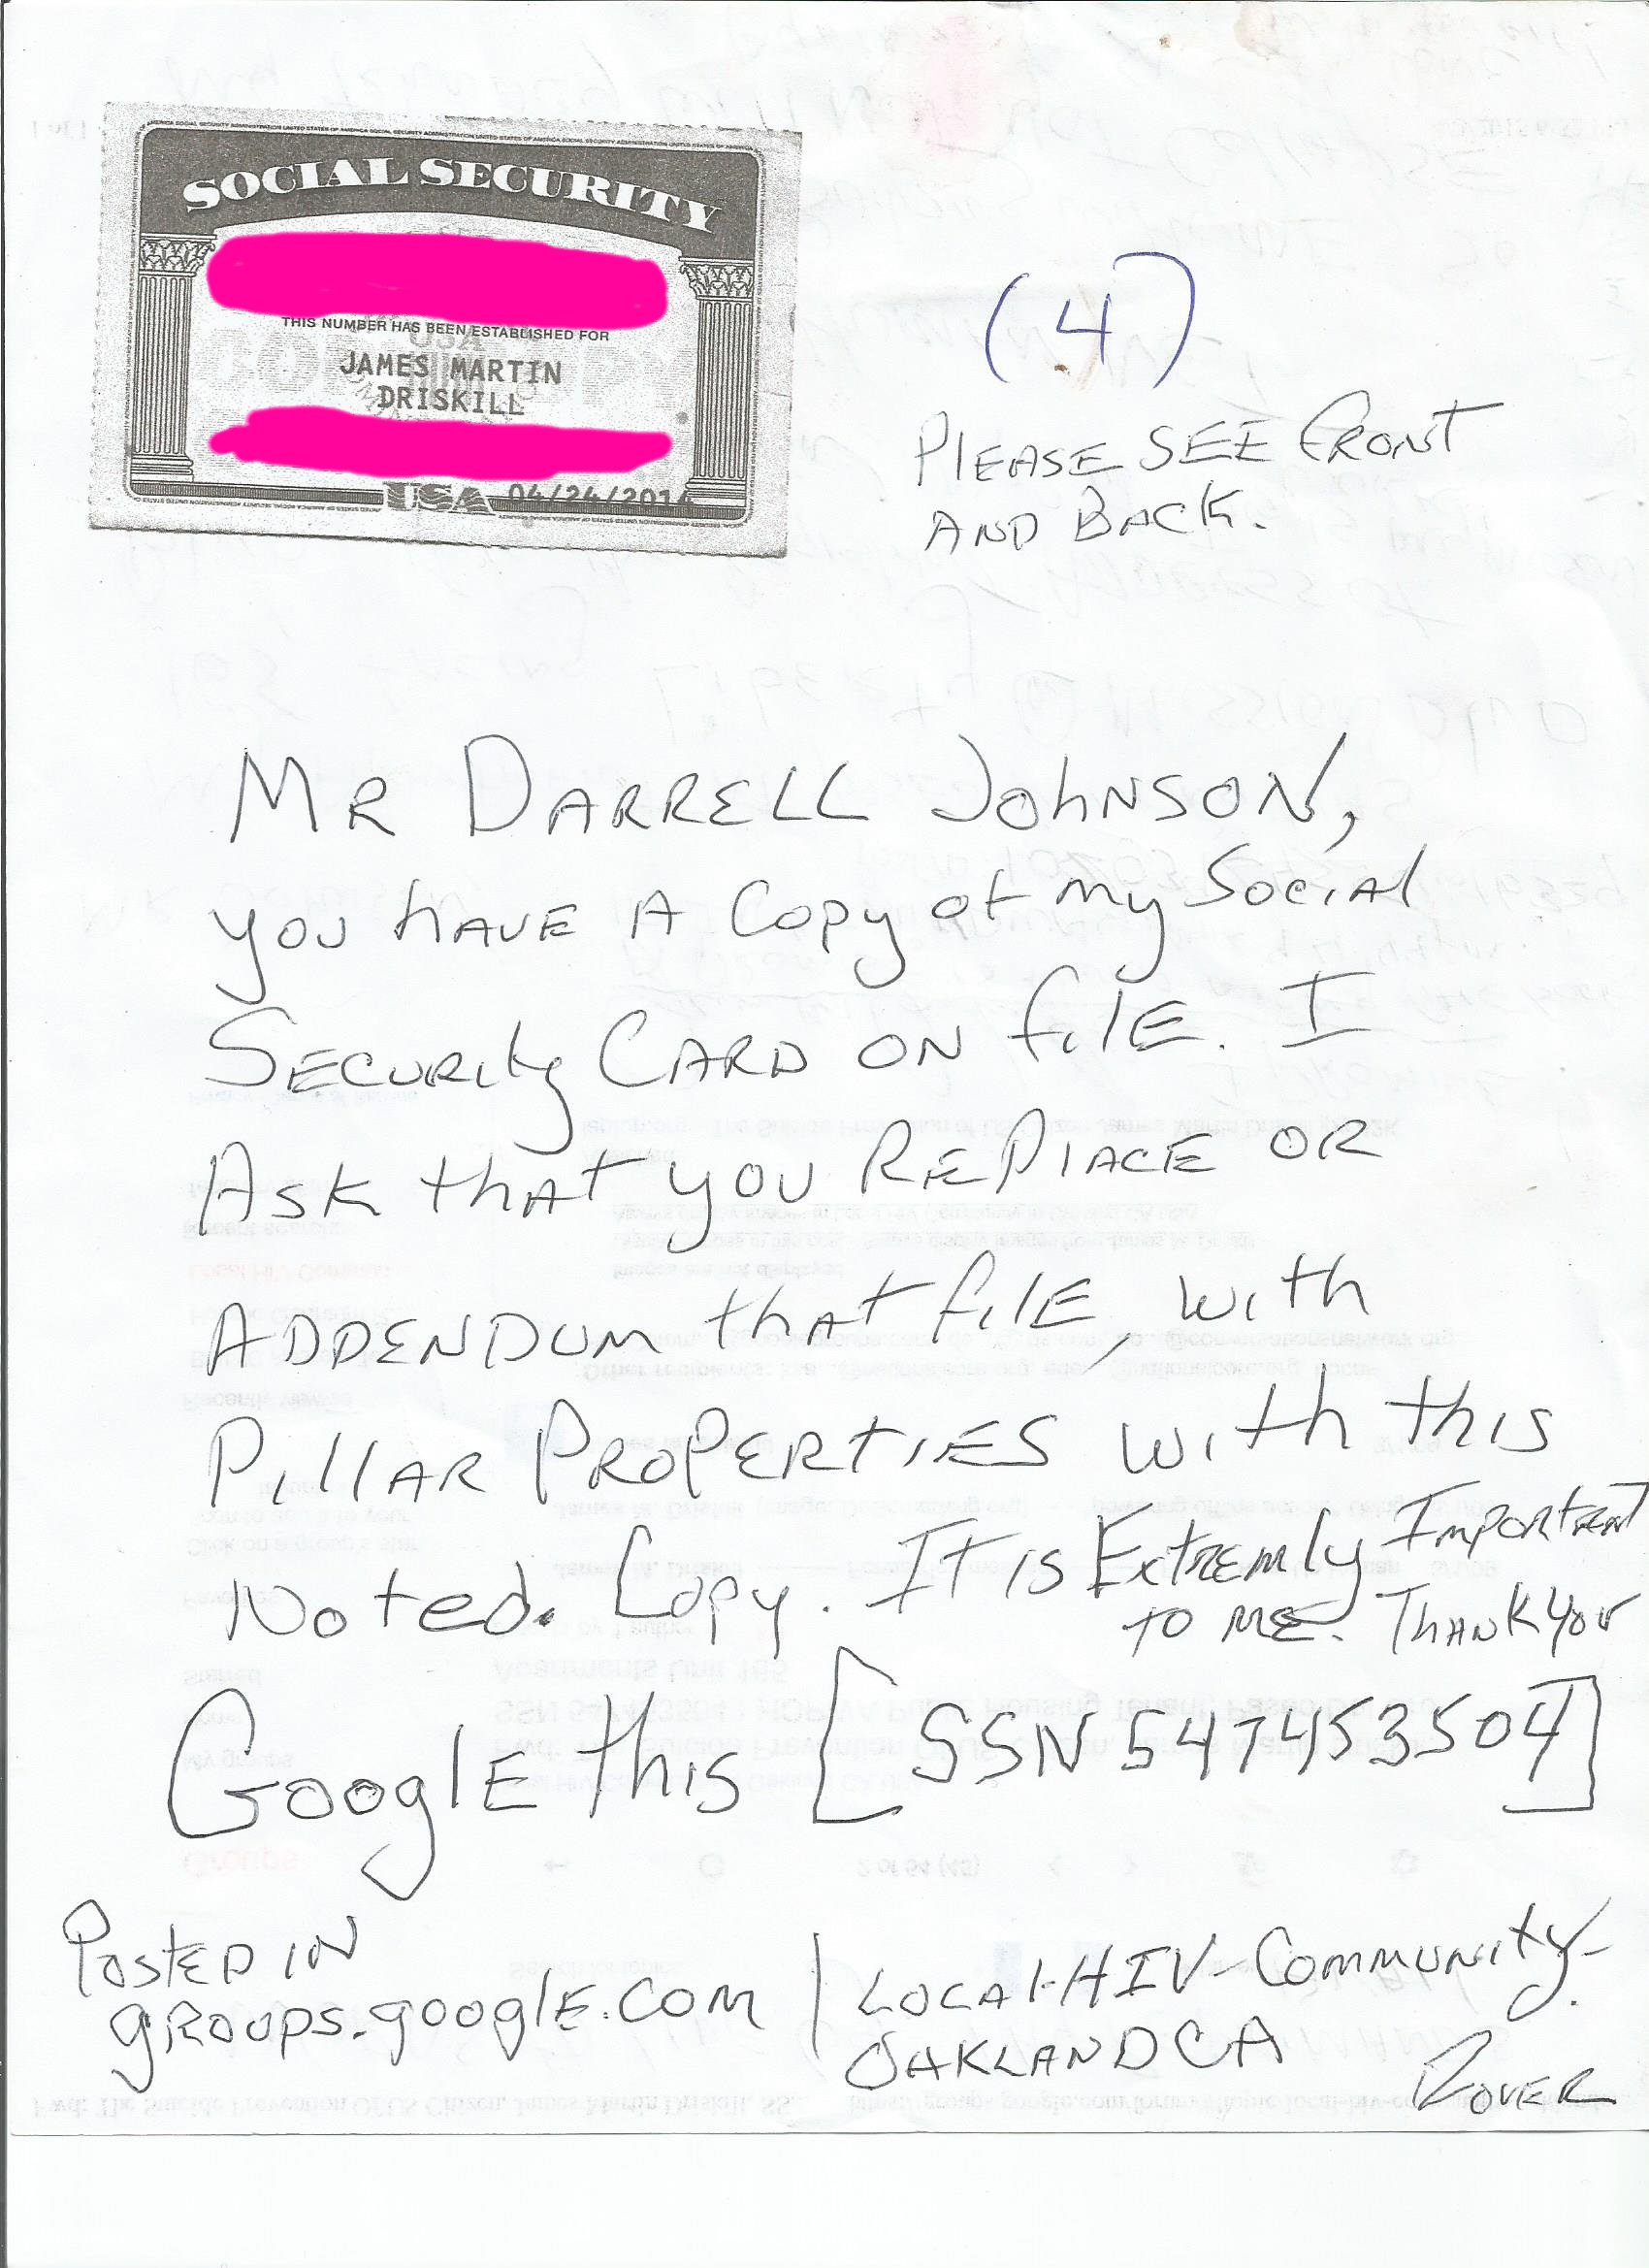 SOCIAL SECURITY
THIS NUMBER HAS BEEN ESTABLISHED FOR
JAMES MARTIN
DRISKILL
USA 04/24/2014
(4)
PLEASE SEE FRONT
AND BACK.
MR DARRELL JOHNSON,
YOU HAVE A COPY OF MY SOCIAL
SECURITY CARD ON FILE. I
ASK THAT YOU REPLACE OR
ADDENDUM THAT FILE, WITH
PILLAR PROPERTIES WITH THIS
NOTED. COPY. IT IS EXTREMLY IMPORTANT
TO ME. THANK YOU
GOOGLE THIS [SSN (number withheld for privacy)]
POSTED IN
groups.google.com / LOCAL-HIV-COMMUNITY-
OAKLANDCA
OVER